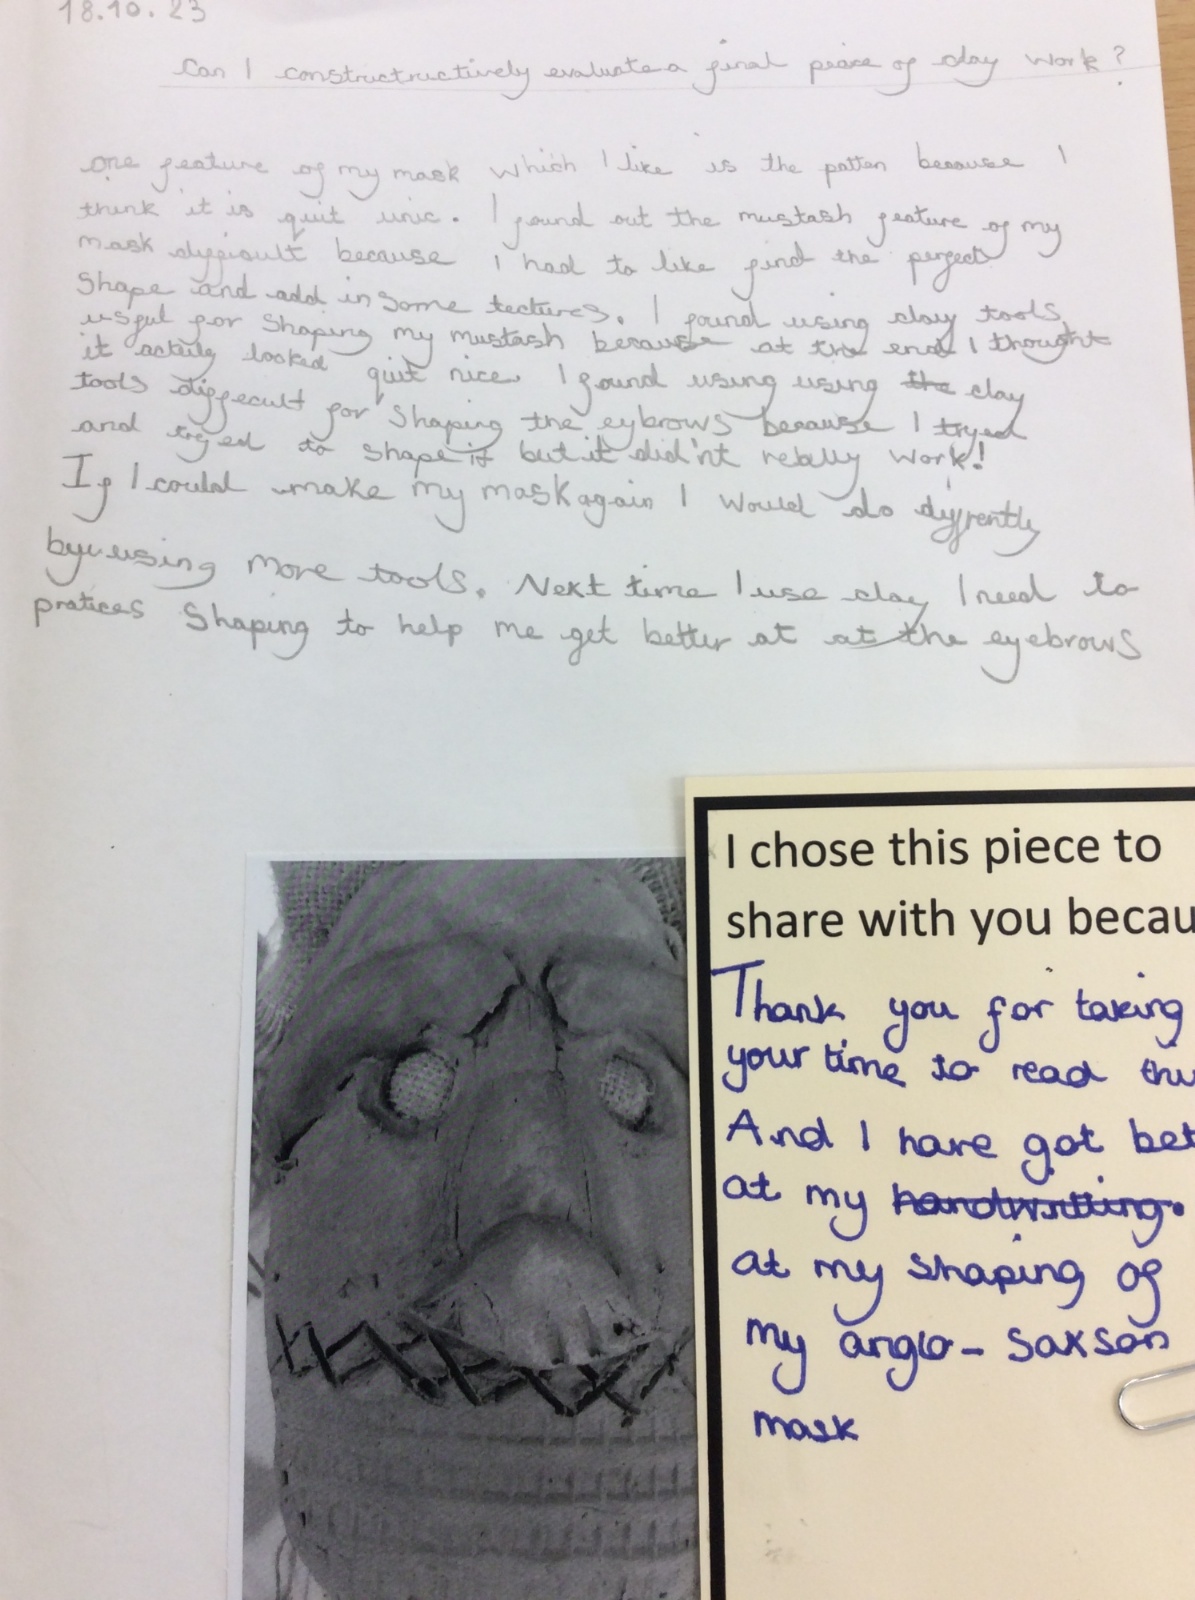 18.10.23
Can I constructructively evaluate a final peice of clay work?
one feature of my mask which I like is the patten because I
think it is quit unic. I found out the mustash feature of my
mask difficult because I had to like find the perfect
shape and add in some tectures. I found using clay tools
usful for shaping my mustash because at the end I thought
it actuly looked quit nice. I found using using the clay
tools diffecult for shaping the eybrows because I tryed
and tryed to shape it but it did'nt really work!
If I could make my mask again I would do diffrently
by using more tools. Next time I use clay I need to
pratices shaping to help me get better at at the eyebrows
I chose this piece to
share with you becau
Thank you for taking
your time to read thi
And I have got bet
at my handwritting.
at my shaping of
my anglo-saxson
mask